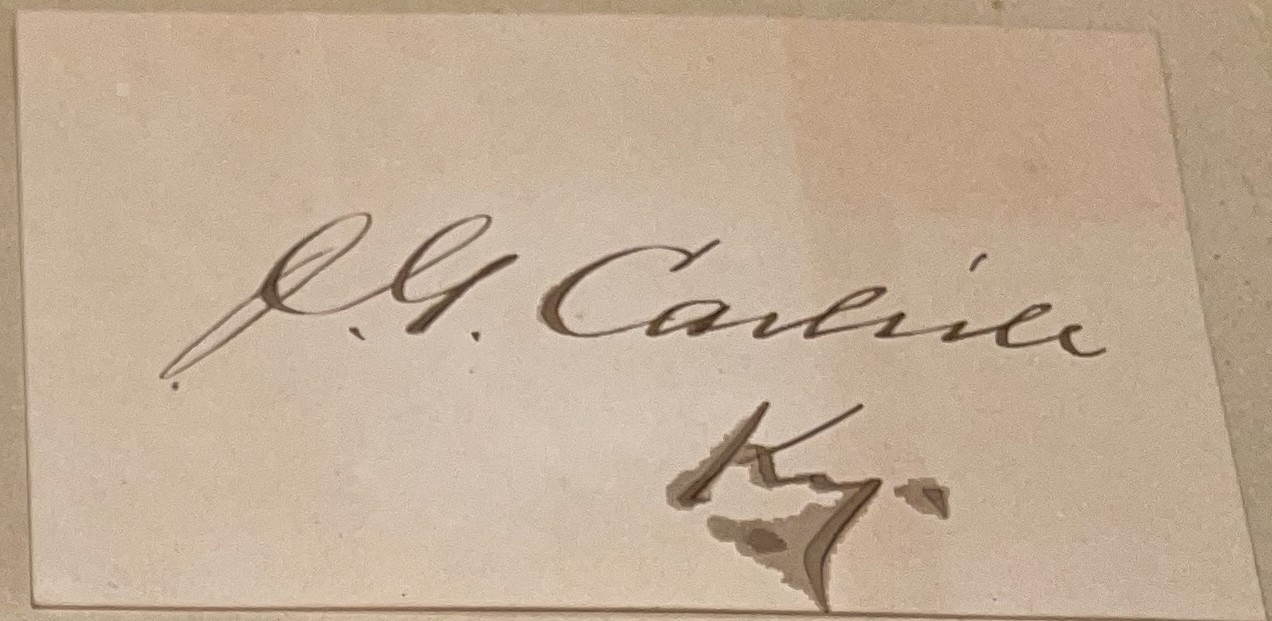 J. G. Carlisle
Ky.